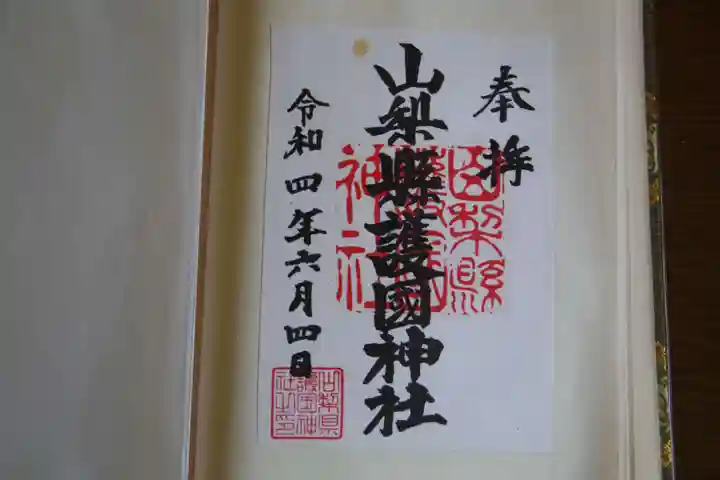 奉拝
山梨縣護國神社
令和四年六月四日
山梨縣護國神社
山梨県護国神社之印